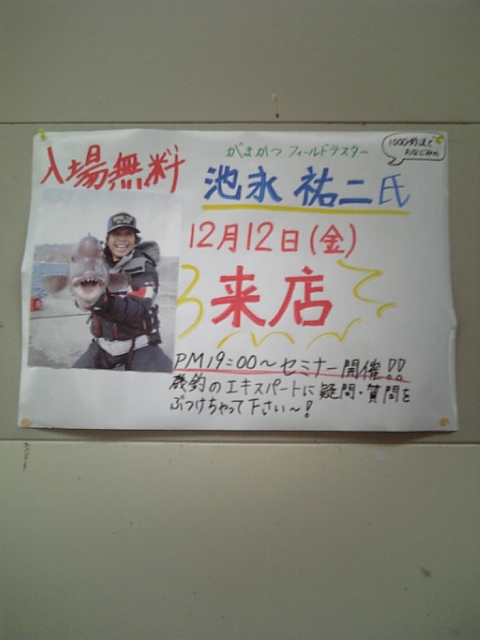 入場無料
がまかつ フィールドテスター
1000釣法で
おなじみの
池永 祐二氏
12月12日(金)
来店
PM19:00〜セミナー開催!!
磯釣のエキスパートに疑問・質問を
ぶつけちゃって下さい〜!